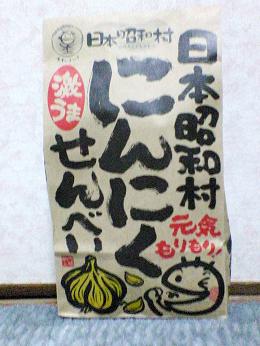 日本昭和村
日本昭和村
にんにく
せんべい
激うま
元気
もりもり!